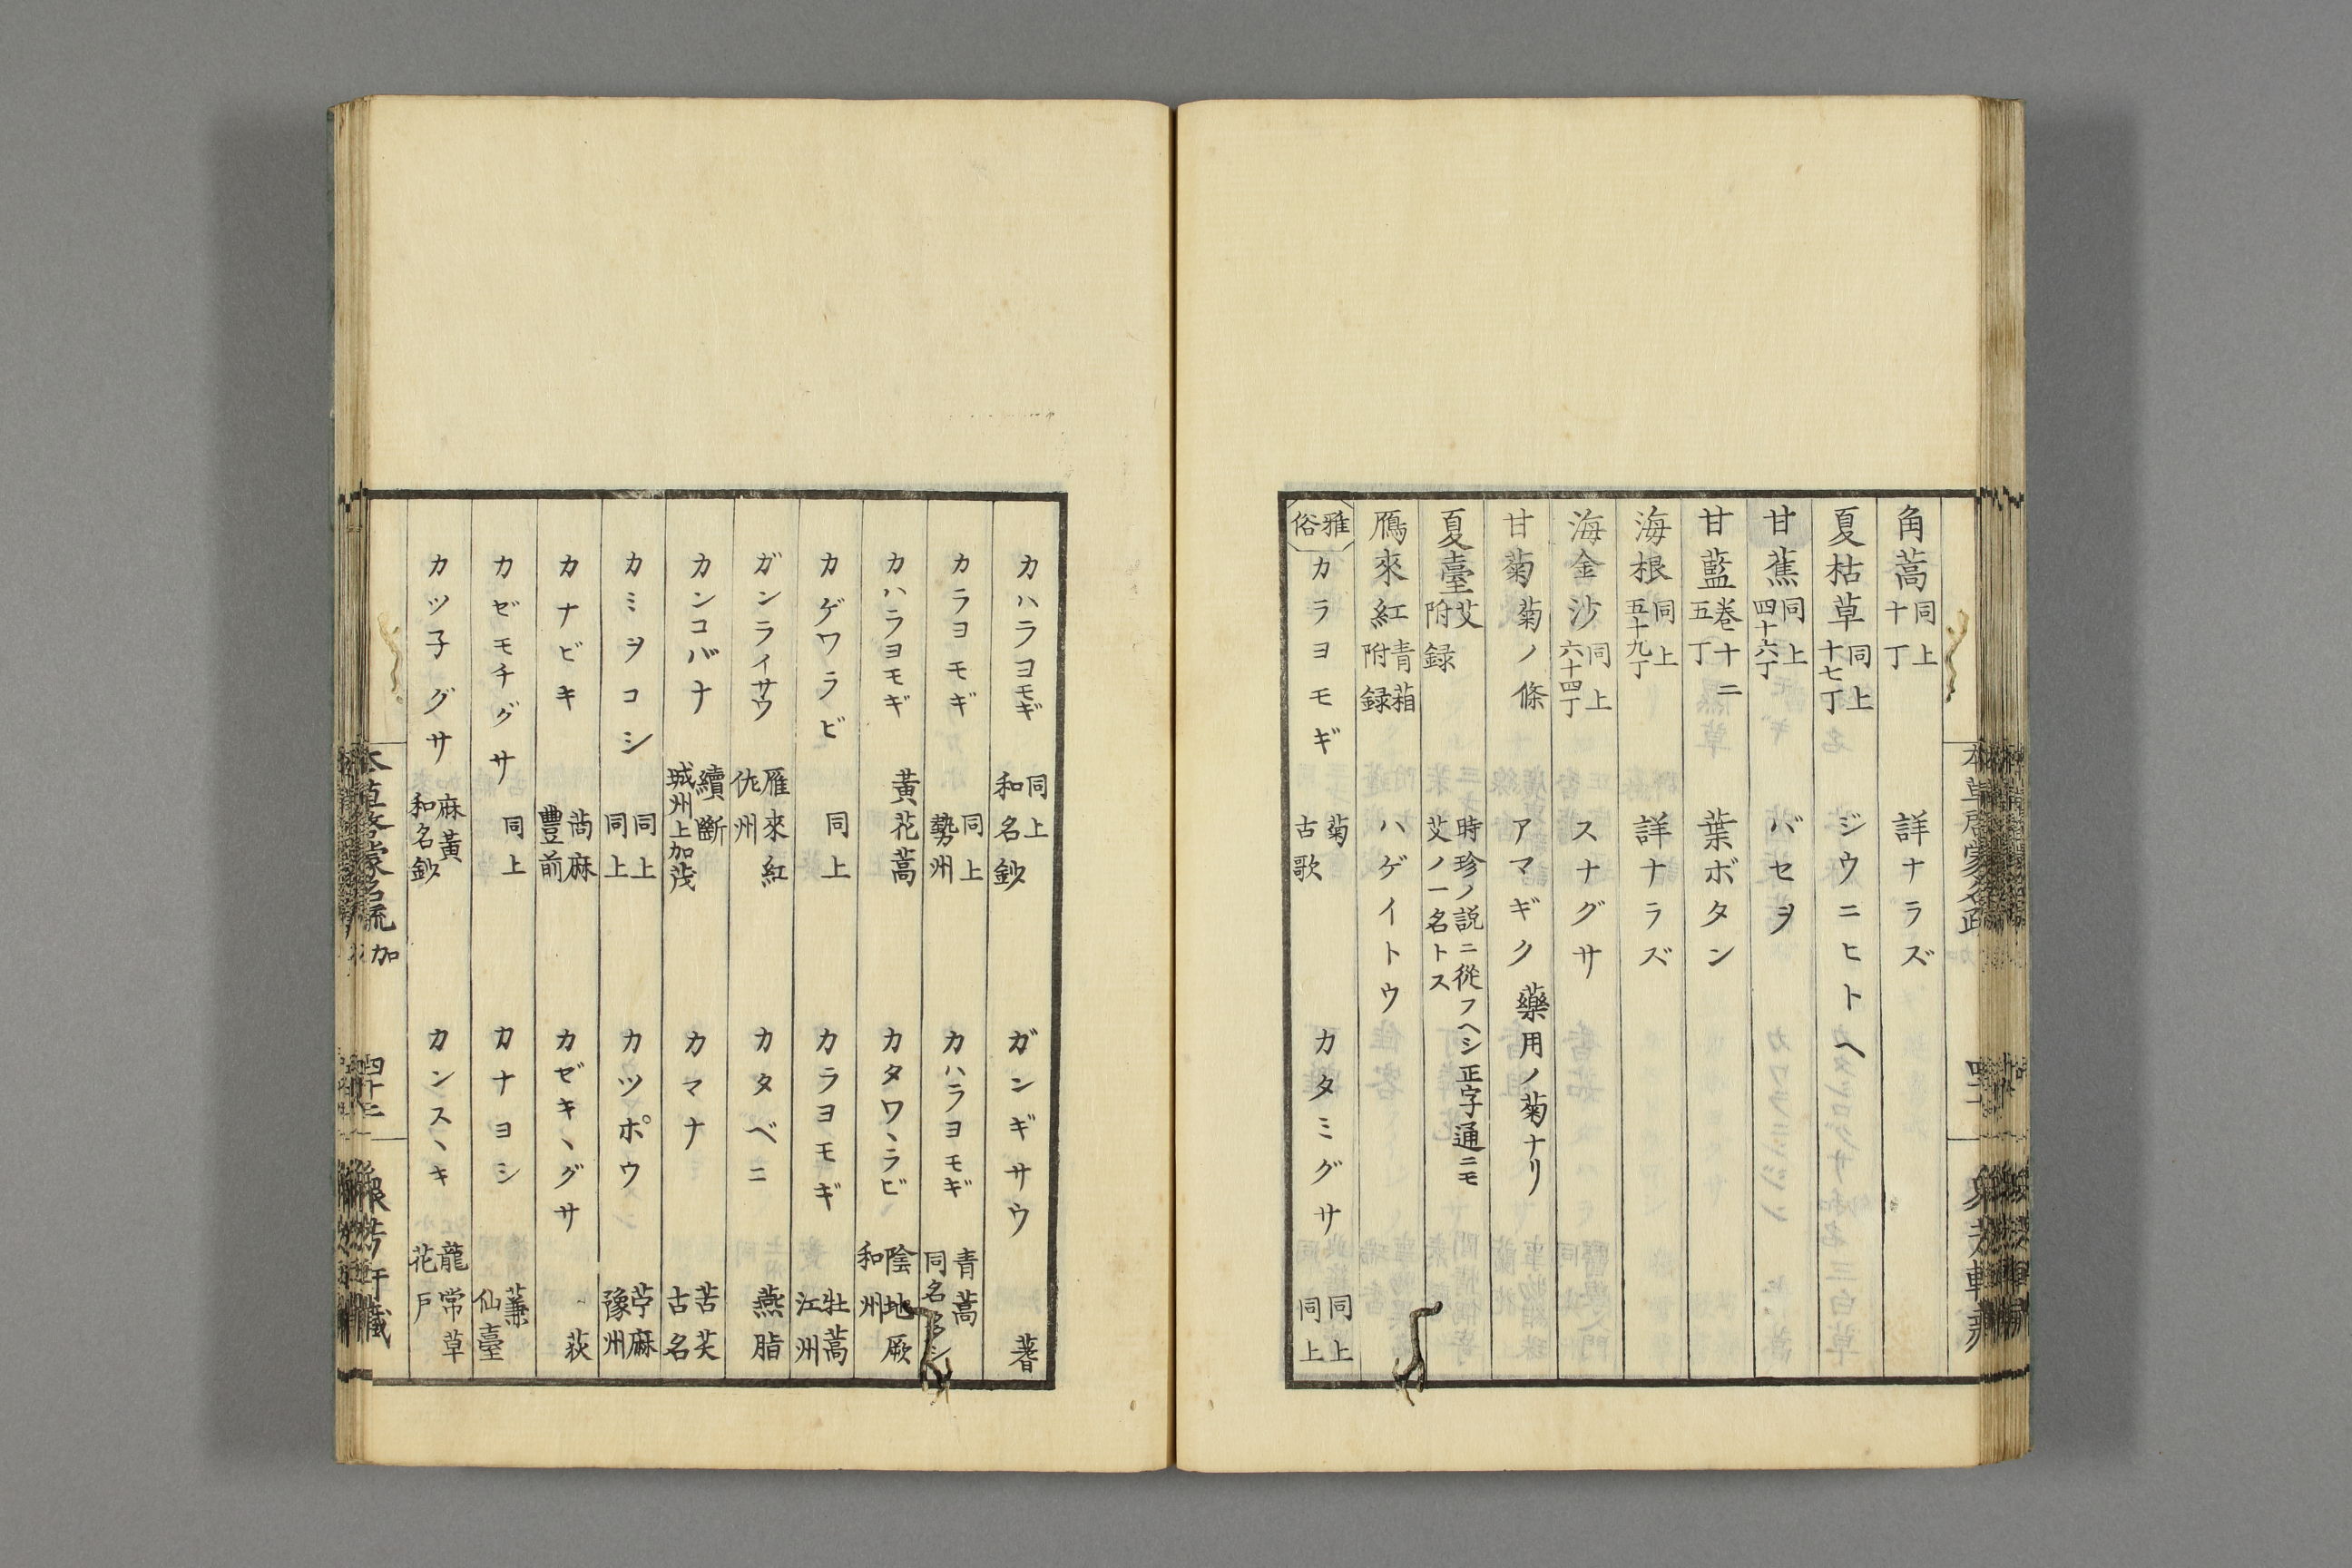 角蒿 同上十丁 詳ナラズ
夏枯草 同上十七丁 ジウニヒトヘ
甘蕉 同上四十六丁 バセヲ
甘藍 巻十二五丁 葉ボタン
海根 同上五十九丁 詳ナラズ
海金沙 同上六十四丁 スナグサ
甘菊 菊ノ條 アマギク 藥用ノ菊ナリ
夏臺 艾附録 時珍ノ説ニ從フヘシ正字通ニモ艾ノ一名トス
鴈來紅 青葙附録 ハゲイトウ
雅俗 カラヨモギ 菊古歌 カタミグサ 同上同上
カハラヨモギ 同上和名鈔 ガンギサウ 蓍
カラヨモギ 同上勢州 カハラヨモギ 青蒿同名多シ
カハラヨモギ 黃花蒿 カタワヽラビ 陰地厥和州
カゲワラビ 同上 カラヨモギ 牡蒿江州
ガンライサウ 雁來紅佐州 カタベニ 燕脂
カンコバナ 續斷城州上加茂 カマナ 苦芙古名
カミヲコシ 同上同上 カツポウ 苧麻豫州
カナビキ 莔麻豊前 カゼキヽグサ 荻
カゼモチグサ 同上 カナヨシ 蒹仙臺
カツ子グサ 麻黃和名鈔 カンスヽキ 龍常草花戶
本草啓蒙名疏 加 四十二